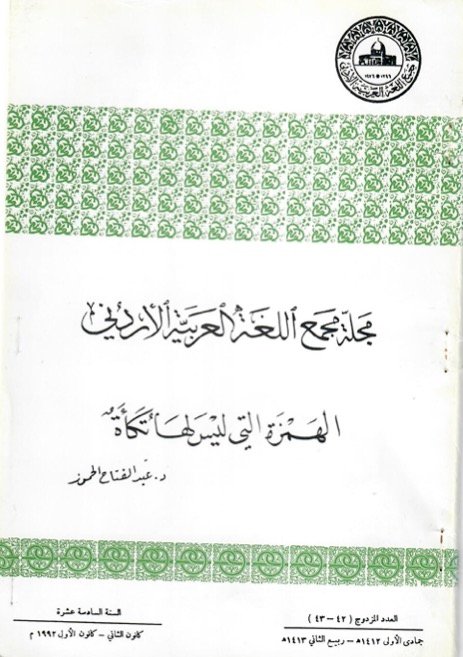 مجمع اللغة العربية الأردني
١٣٩٦ هـ ١٩٧٦
مجلة مجمع اللغة العربية الأردني
الهمزة التي ليس لها تكأة
د. عبد الفتاح الحموز
العدد المزدوج ( ٤٢ - ٤٣ )
جمادى الأولى ١٤١٢هـ - ربيع الثاني ١٤١٣هـ
السنة السادسة عشرة
كانون الثاني - كانون الأول ١٩٩٢ م